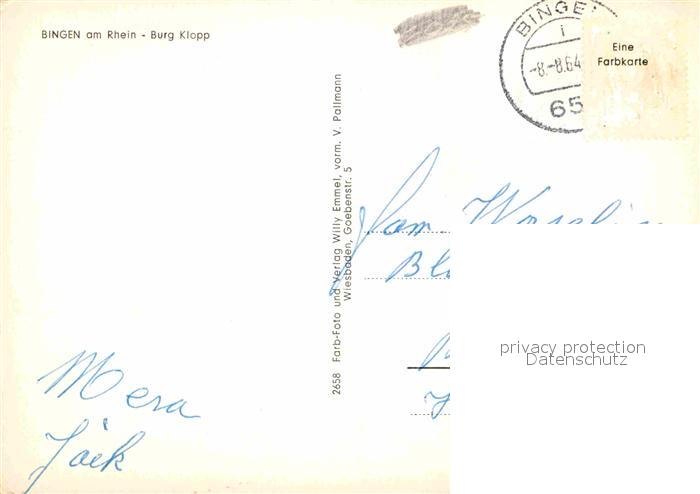 BINGEN am Rhein - Burg Klopp
BINGE
i
-8.-8.64
65
Eine
Farbkarte
2658 Farb-Foto und Verlag Willy Emmel, vorm. V. Pallmann
Wiesbaden, Goebenstr. 5
Fam.
Bl
privacy protection
Datenschutz
Mera
Jack